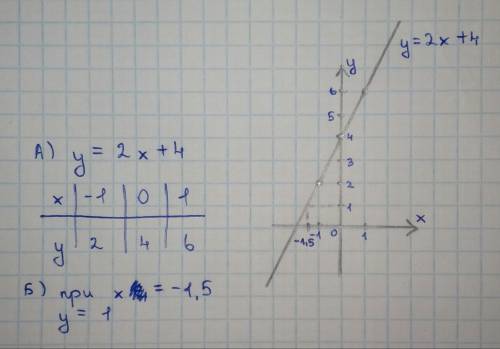 А) y = 2x + 4
x -1 0 1
y 2 4 6
Б) при x = -1,5
y = 1
y = 2x + 4
y
6
5
4
3
2
1
-1,5 -1 0 1 x